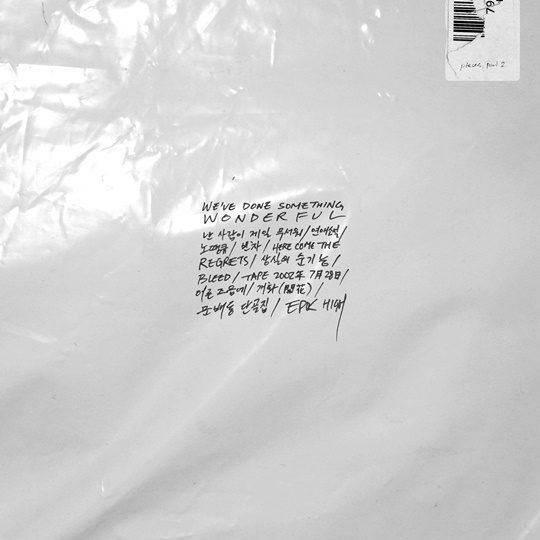 pieces, part 2
WE'VE DONE SOMETHING
WONDERFUL
난 사람이 제일 무서워 / 연애소설 /
노땡큐 / 빈차 / HERE COME THE
REGRETS / 상실의 순기능 /
BLEED / TAPE 2002年 7月 28日 /
어른 즈음에 / 개화 (開花) /
문배동 단골집 / EPIK HIGH